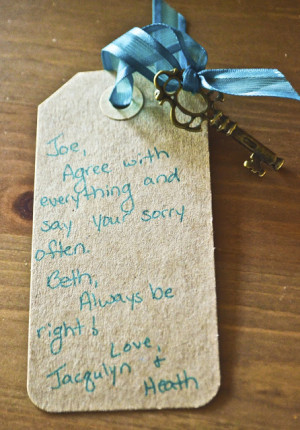 Joe,
Agree with
everything and
say your sorry
often.
Beth,
Always be
right!
Love,
Jacqulyn &
Heath